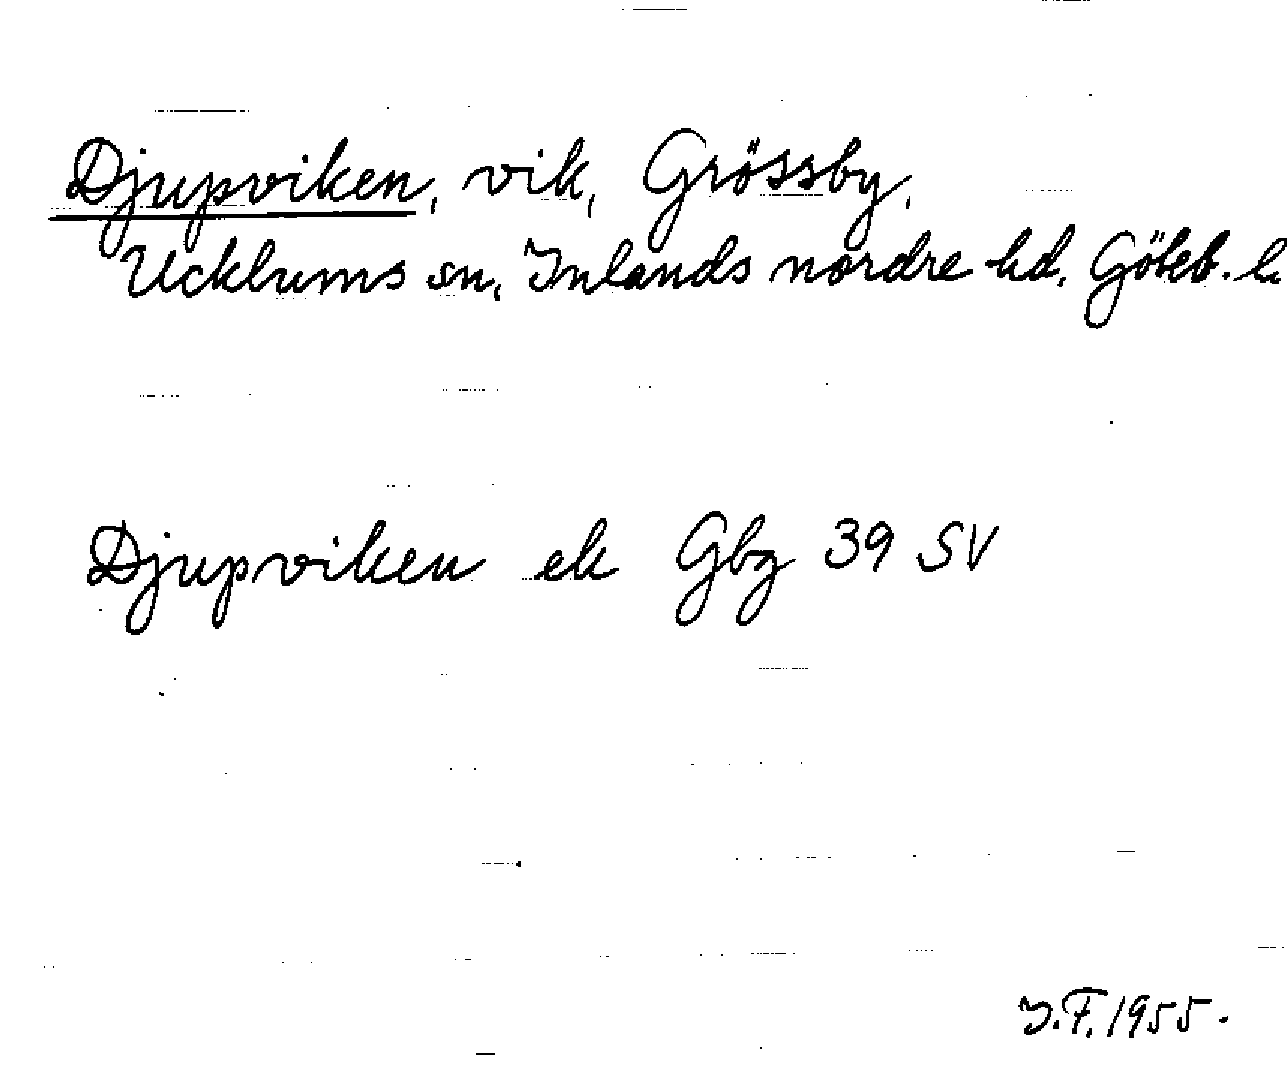 Djupviken, vik, Grössby,
Ucklums sn, Inlands nordre hd. Göteb. l.
Djupviken ek Gbg 39 SV
I.F. 1955.